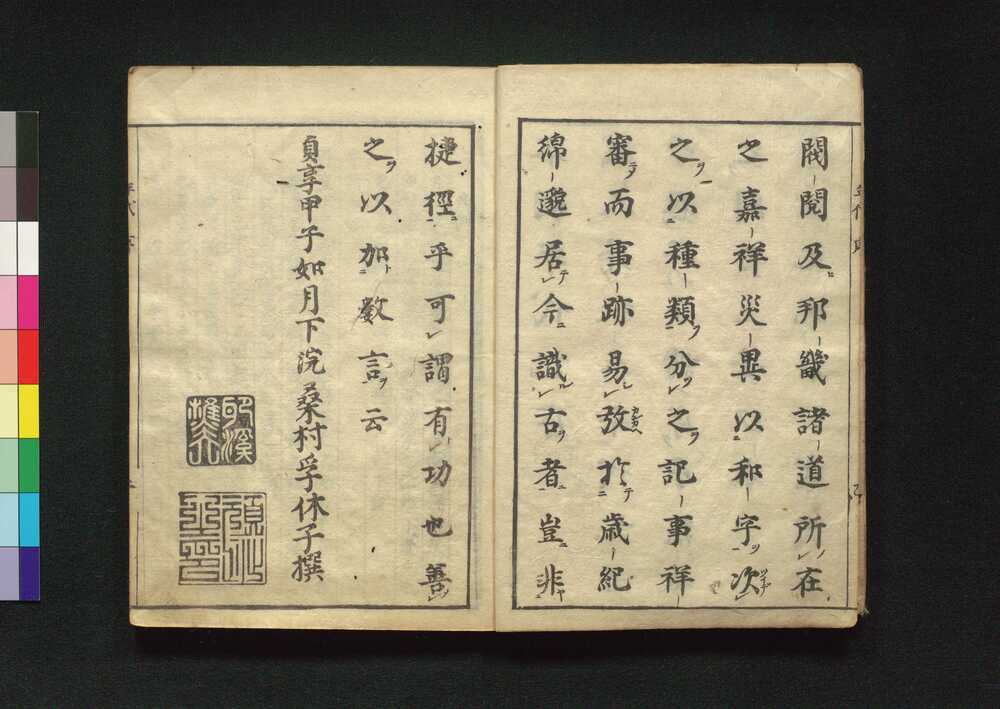 閥閲及邦畿諸道所在
之嘉祥災異以和字次
之以種類分之記事祥
審而事跡易攷於歳紀
綿邈居今識古者豈非
捷徑乎可謂有功也善
之以加数言云
貞享甲子如月下浣桑村孚休子撰